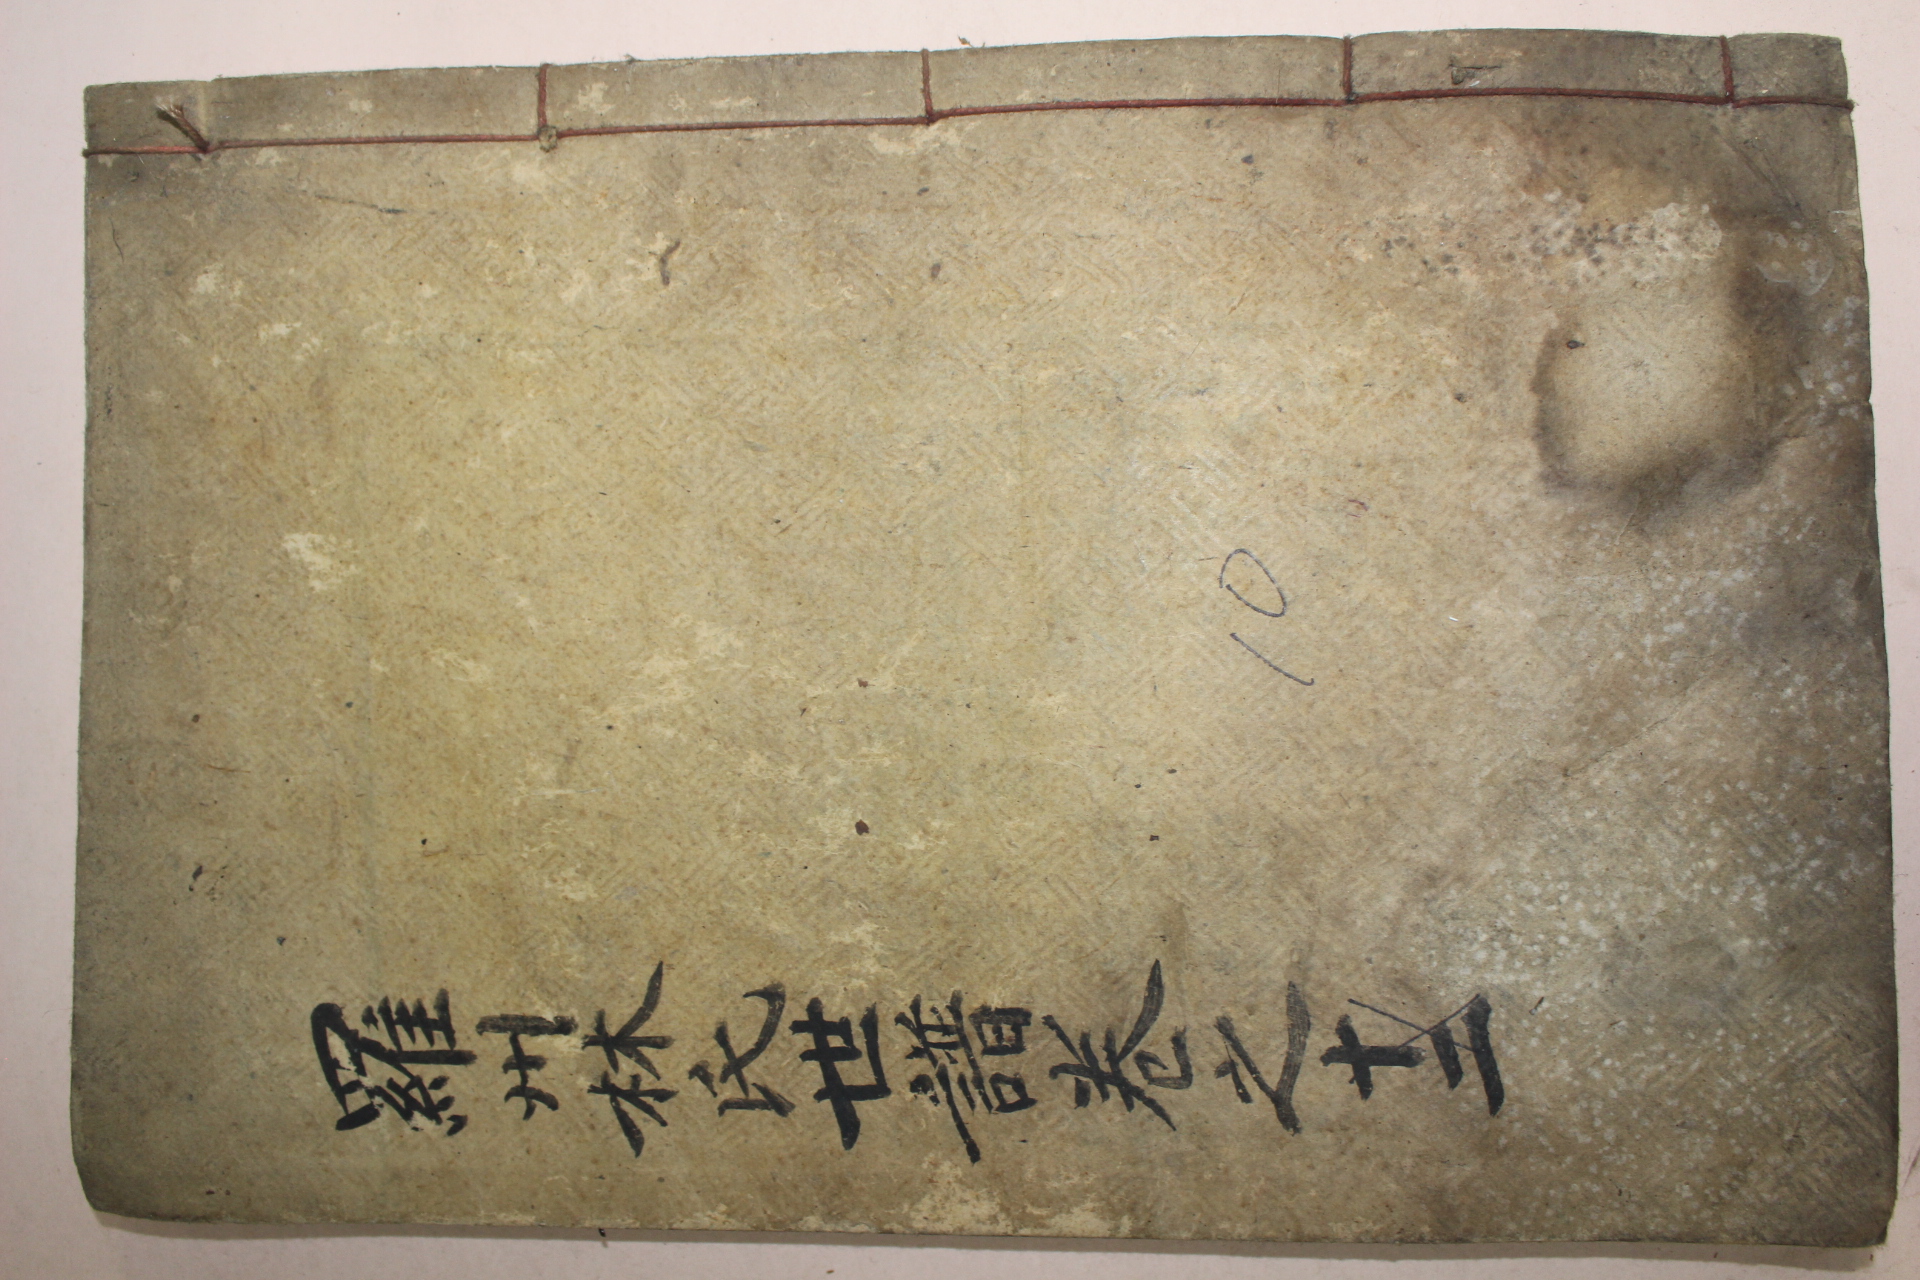 羅州林氏世譜卷之十
10